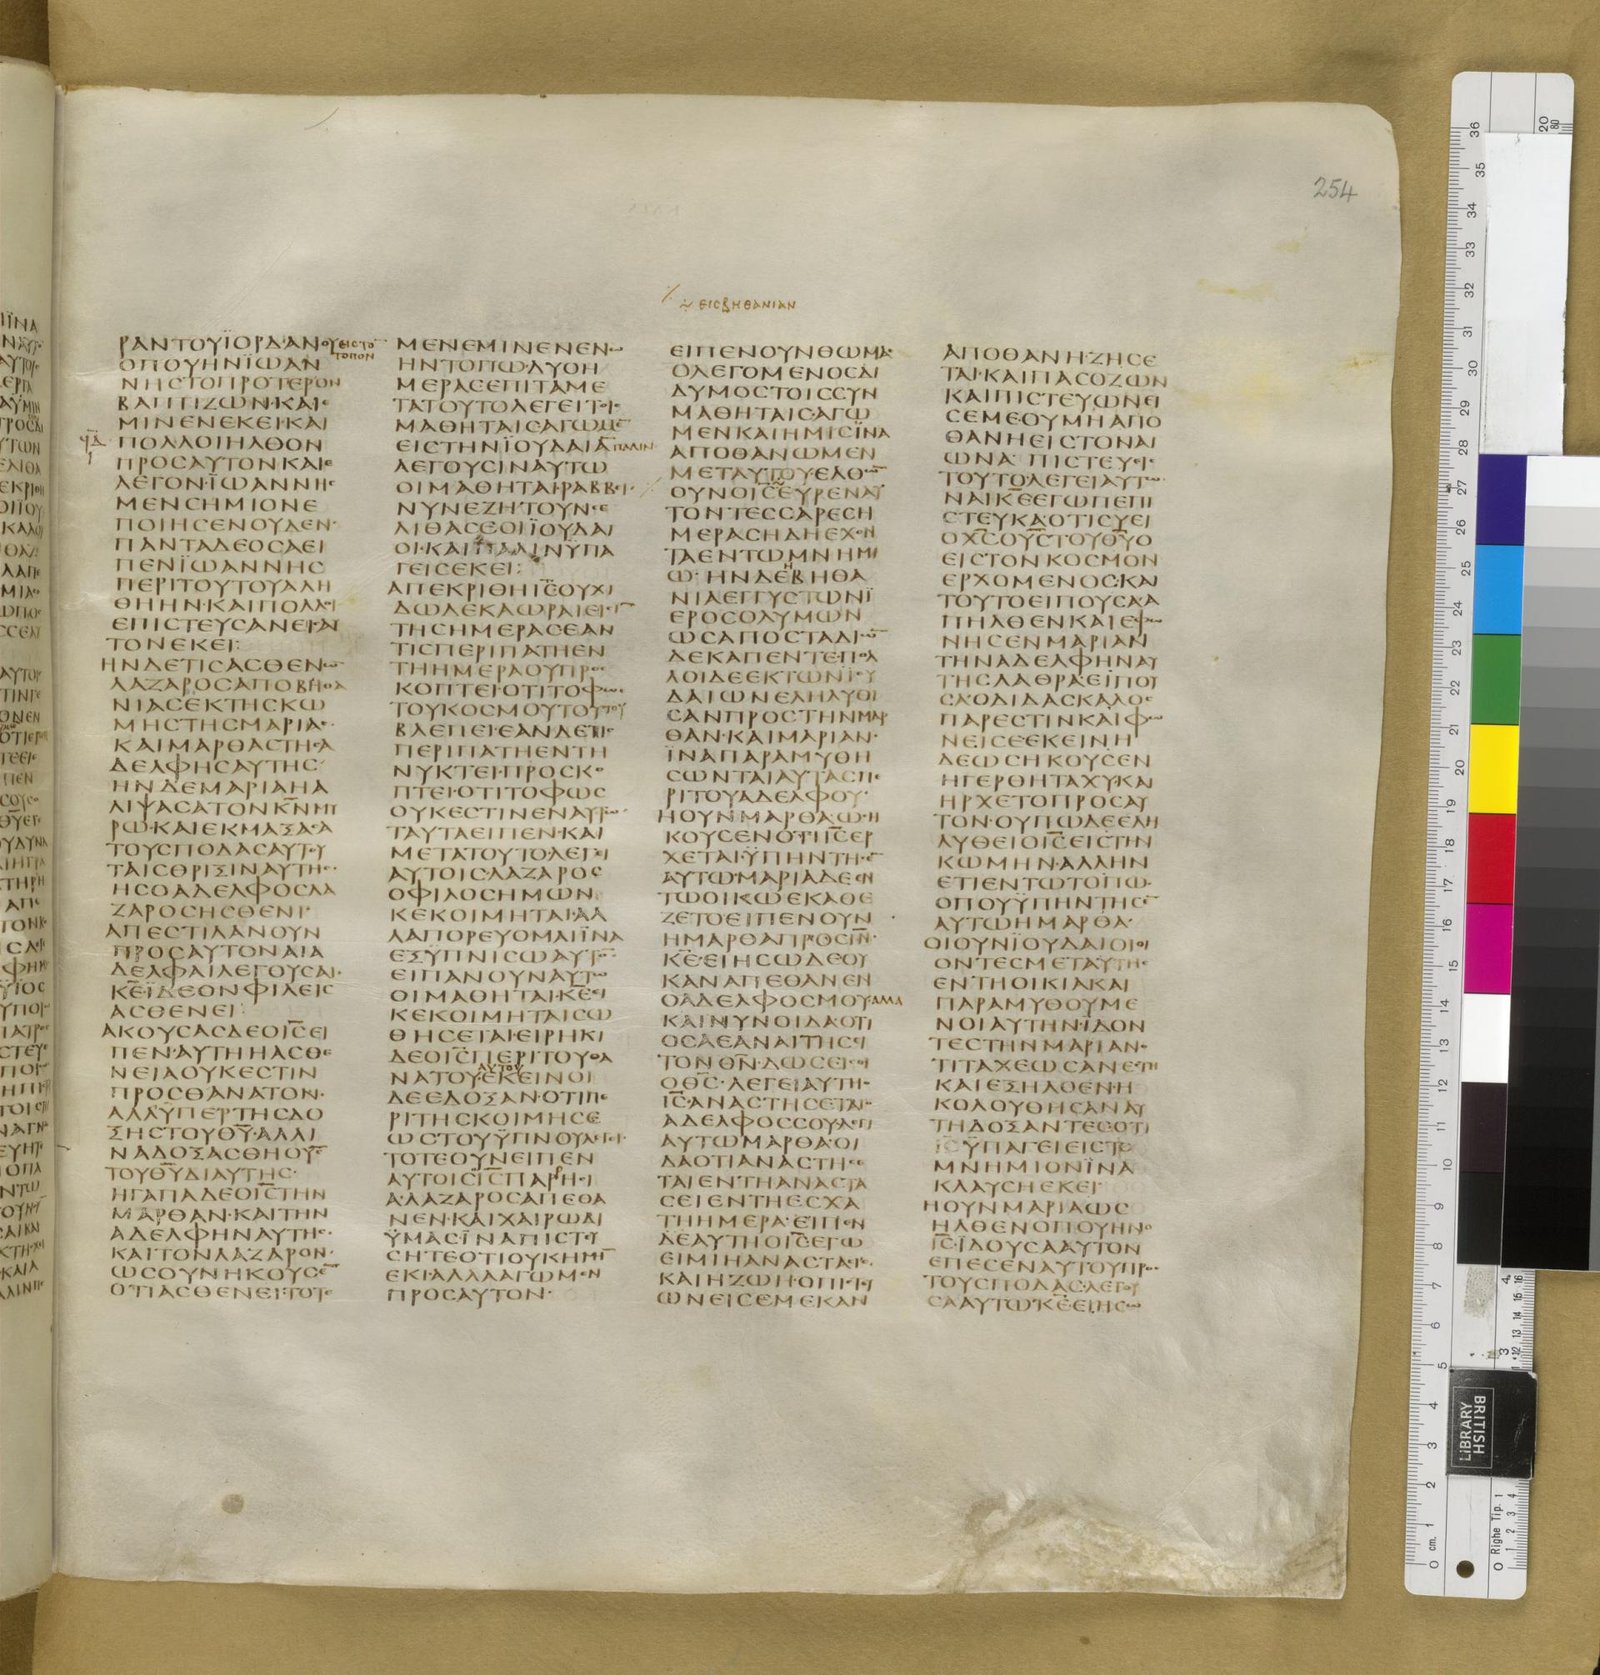 254
ΕΙϹΒΗΘΑΝΙΑΝ
ΡΑΝΤΟΥΪΟΡΔΑΝΟΥ ΕΙϹΤΟ
ΤΟΠΟΝ
ΟΠΟΥΗΝΪΩΑΝ
ΝΗϹΤΟΠΡΟΤΕΡΟΝ
ΒΑΠΤΙΖΩΝ·ΚΑΙΕ
ΜΙΝΕΝΕΚΕΙ·ΚΑΙ
ΠΟΛΛΟΙΗΛΘΟΝ
ΠΡΟϹΑΥΤΟΝΚΑΙΕ
ΛΕΓΟΝ·ΪΩΑΝΝΗϹ
ΜΕΝϹΗΜΙΟΝΕ
ΠΟΙΗϹΕΝΟΥΔΕΝ·
ΠΑΝΤΑΔΕΟϹΑΕΙ
ΠΕΝΪΩΑΝΝΗϹ
ΠΕΡΙΤΟΥΤΟΥΑΛΗ
ΘΗΗΝ·ΚΑΙΠΟΛΛΟΙ
ΕΠΙϹΤΕΥϹΑΝΕΙϹΑΥ
ΤΟΝΕΚΕΙ:
ΗΝΔΕΤΙϹΑϹΘΕΝΩΝ
ΛΑΖΑΡΟϹΑΠΟΒΗΘΑ
ΝΙΑϹΕΚΤΗϹΚΩ
ΜΗϹΤΗϹΜΑΡΙΑϹ·
ΚΑΙΜΑΡΘΑϹΤΗϹΑ
ΔΕΛΦΗϹΑΥΤΗϹ
ΗΝΔΕΜΑΡΙΑΗΑ
ΛΙΨΑϹΑΤΟΝΚ̅Ν̅ΜΥ
ΡΩ·ΚΑΙΕΚΜΑΞΑϹΑ
ΤΟΥϹΠΟΔΑϹΑΥΤΟΥ
ΤΑΙϹΘΡΙΞΙΝΑΥΤΗϹ·
ΗϹΟΑΔΕΛΦΟϹΛΑ
ΖΑΡΟϹΗϹΘΕΝΙ·
ΑΠΕϹΤΙΛΑΝΟΥΝ
ΠΡΟϹΑΥΤΟΝΑΙΑ
ΔΕΛΦΑΙΛΕΓΟΥϹΑΙ·
Κ̅Ε̅ΪΔΕΟΝΦΙΛΕΙϹ
ΑϹΘΕΝΕΙ:
ΑΚΟΥϹΑϹΔΕΟΙ̅Ϲ̅ΕΙ
ΠΕΝ·ΑΥΤΗΗΑϹΘΕ
ΝΕΙΑΟΥΚΕϹΤΙΝ
ΠΡΟϹΘΑΝΑΤΟΝ·
ΑΛΛΥΠΕΡΤΗϹΔΟ
ΞΗϹΤΟΥΘ̅Υ̅·ΑΛΛΙ
ΝΑΔΟΞΑϹΘΗΟΥϹ̅
ΤΟΥΘ̅Υ̅ΔΙΑΥΤΗϹ·
ΗΓΑΠΑΔΕΟΙ̅Ϲ̅ΤΗΝ
ΜΑΡΘΑΝ·ΚΑΙΤΗΝ
ΑΔΕΛΦΗΝΑΥΤΗϹ·
ΚΑΙΤΟΝΛΑΖΑΡΟΝ·
ΩϹΟΥΝΗΚΟΥϹΕ̅
ΟΤΙΑϹΘΕΝΕΙ·ΤΟΤΕ
ΜΕΝΕΜΙΝΕΝΕΝΩ
ΗΝΤΟΠΩ·ΔΥΟΗ
ΜΕΡΑϹΕΠΙΤΑΜΕ
ΤΑΤΟΥΤΟΛΕΓΕΙΤΟΙϹ
ΜΑΘΗΤΑΙϹΑΓΩΜΕ̅
ΕΙϹΤΗΝΪΟΥΔΑΙΑ̅ΠΑΛΙΝ
ΛΕΓΟΥϹΙΝΑΥΤΩ
ΟΙΜΑΘΗΤΑΙ·ΡΑΒΒΕΙ·
ΝΥΝΕΖΗΤΟΥΝϹΕ
ΛΙΘΑϹΕΟΙΪΟΥΔΑΙ
ΟΙ·ΚΑΙΠΑΛΙΝΥΠΑ
ΓΕΙϹΕΚΕΙ:
ΑΠΕΚΡΙΘΗΙ̅Ϲ̅ΟΥΧΙ
ΔΩΔΕΚΑΩΡΑΙΕΙϹΙ̅
ΤΗϹΗΜΕΡΑϹΕΑΝ
ΤΙϹΠΕΡΙΠΑΤΗΕΝ
ΤΗΗΜΕΡΑΟΥΠΡΟϹ
ΚΟΠΤΕΙ·ΟΤΙΤΟΦΩϹ
ΤΟΥΚΟϹΜΟΥΤΟΥΤΟΥ
ΒΛΕΠΕΙ·ΕΑΝΔΕΤΙϹ
ΠΕΡΙΠΑΤΗΕΝΤΗ
ΝΥΚΤΕΙ·ΠΡΟϹΚΟ
ΠΤΕΙ·ΟΤΙΤΟΦΩϹ
ΟΥΚΕϹΤΙΝΕΝΑΥΤΩ·
ΤΑΥΤΑΕΙΠΕΝ·ΚΑΙ
ΜΕΤΑΤΟΥΤΟΛΕΓΕΙ
ΑΥΤΟΙϹ·ΛΑΖΑΡΟϹ
ΟΦΙΛΟϹΗΜΩΝ
ΚΕΚΟΙΜΗΤΑΙ·ΑΛ
ΛΑΠΟΡΕΥΟΜΑΙΪΝΑ
ΕΞΥΠΝΙϹΩΑΥΤΟ̅·
ΕΙΠΑΝΟΥΝΑΥΤΩ
ΟΙΜΑΘΗΤΑΙ·Κ̅Ε̅ΕΙ
ΚΕΚΟΙΜΗΤΑΙϹΩ
ΘΗϹΕΤΑΙ·ΕΙΡΗΚΙ
ΔΕΟΙ̅Ϲ̅ΠΕΡΙΤΟΥΘΑ
ΑΥΤΟΥ
ΝΑΤΟΥ·ΕΚΕΙΝΟΙ
ΔΕΕΔΟΞΑΝ·ΟΤΙΠΕ
ΡΙΤΗϹΚΟΙΜΗϹΕ
ΩϹΤΟΥΥΠΝΟΥΛΕΓΕΙ·
ΤΟΤΕΟΥΝΕΙΠΕΝ
ΑΥΤΟΙϹΙ̅Ϲ̅ΠΑΡΗϹΙ
Α·ΛΑΖΑΡΟϹΑΠΕΘΑ
ΝΕΝ·ΚΑΙΧΑΙΡΩΔΙ
ΥΜΑϹ·ΪΝΑΠΙϹΤΕΥ
ϹΗΤΕΟΤΙΟΥΚΗΜΗ̅
ΕΚΙ·ΑΛΛΑΑΓΩΜΕΝ
ΠΡΟϹΑΥΤΟΝ·
ΕΙΠΕΝΟΥΝΘΩΜΑϹ
ΟΛΕΓΟΜΕΝΟϹΔΙ
ΔΥΜΟϹΤΟΙϹϹΥΝ
ΜΑΘΗΤΑΙϹ·ΑΓΩ
ΜΕΝΚΑΙΗΜΙϹΪΝΑ
ΑΠΟΘΑΝΩΜΕΝ
ΜΕΤΑΥΤΟΥ·ΕΛΘΩ̅
ΟΥΝΟΙ̅Ϲ̅ΕΥΡΕΝΑΥ
ΤΟΝΤΕϹϹΑΡΕϹΗ
ΜΕΡΑϹΗΔΗΕΧΟΝ
ΤΑΕΝΤΩΜΝΗΜΙ
Ω·ΗΝΔΕΗΒΗΘΑ
ΝΙΑΕΓΓΥϹΤΩΝΪ
ΕΡΟϹΟΛΥΜΩΝ
ΩϹΑΠΟϹΤΑΔΙΩ̅
ΔΕΚΑΠΕΝΤΕ·ΠΟΛ
ΛΟΙΔΕΕΚΤΩΝΪΟΥ
ΔΑΙΩΝΕΛΗΛΥΘΙ
ϹΑΝΠΡΟϹΤΗΝΜΑΡ
ΘΑΝ·ΚΑΙΜΑΡΙΑΝ·
ΪΝΑΠΑΡΑΜΥΘΗ
ϹΩΝΤΑΙΑΥΤΑϹΠΕ
ΡΙΤΟΥΑΔΕΛΦΟΥ·
ΗΟΥΝΜΑΡΘΑΩϹΗ
ΚΟΥϹΕΝΟΤΙΙ̅Ϲ̅ΕΡ
ΧΕΤΑΙ·ΥΠΗΝΤΗϹΕ̅
ΑΥΤΩ·ΜΑΡΙΑΔΕΕΝ
ΤΩΟΙΚΩΕΚΑΘΕ
ΖΕΤΟΕΙΠΕΝΟΥΝ
ΗΜΑΡΘΑΠΡΟϹΙ̅Ν̅·
Κ̅Ε̅·ΕΙΗϹΩΔΕΟΥ
ΚΑΝΑΠΕΘΑΝΕΝ
ΟΑΔΕΛΦΟϹΜΟΥ·ΑΛΛΑ
ΚΑΙΝΥΝΟΙΔΑΟΤΙ
ΟϹΑΕΑΝΑΙΤΗϹΗ
ΤΟΝΘ̅Ν̅·ΔΩϹΕΙϹΟΙ
ΟΘ̅Ϲ̅·ΛΕΓΕΙΑΥΤΗΟ
Ι̅Ϲ̅·ΑΝΑϹΤΗϹΕΤΑΙΟ
ΑΔΕΛΦΟϹϹΟΥΛΕΓΙ
ΑΥΤΩΜΑΡΘΑ·ΟΙ
ΔΑΟΤΙΑΝΑϹΤΗϹΕ
ΤΑΙΕΝΤΗΑΝΑϹΤΑ
ϹΕΙΕΝΤΗΕϹΧΑ
ΤΗΗΜΕΡΑ·ΕΙΠΕΝ
ΔΕΑΥΤΗΟΙ̅Ϲ̅ΕΓΩ
ΕΙΜΙΗΑΝΑϹΤΑϹΙϹ
ΚΑΙΗΖΩΗ·ΟΠΙϹΤΕΥ
ΩΝΕΙϹΕΜΕΚΑΝ
ΑΠΟΘΑΝΗ·ΖΗϹΕ
ΤΑΙ·ΚΑΙΠΑϹΟΖΩΝ
ΚΑΙΠΙϹΤΕΥΩΝΕΙ
ϹΕΜΕΟΥΜΗΑΠΟ
ΘΑΝΗΕΙϹΤΟΝΑΙ
ΩΝΑ·ΠΙϹΤΕΥΕΙϹ
ΤΟΥΤΟΛΕΓΕΙΑΥΤΩ·
ΝΑΙΚ̅Ε̅ΕΓΩΠΕΠΙ
ϹΤΕΥΚΑΟΤΙϹΥΕΙ
ΟΧ̅Ϲ̅ΟΥ̅Ϲ̅ΤΟΥΘ̅Υ̅Ο
ΕΙϹΤΟΝΚΟϹΜΟΝ
ΕΡΧΟΜΕΝΟϹ·ΚΑΙ
ΤΟΥΤΟΕΙΠΟΥϹΑΑ
ΠΗΛΘΕΝΚΑΙΕΦΩ
ΝΗϹΕΝΜΑΡΙΑΝ
ΤΗΝΑΔΕΛΦΗΝΑΥ
ΤΗϹΛΑΘΡΑΕΙΠΟΥ
ϹΑ·ΟΔΙΔΑϹΚΑΛΟϹ
ΠΑΡΕϹΤΙΝΚΑΙΦΩ
ΝΕΙϹΕ·ΕΚΕΙΝΗ
ΔΕΩϹΗΚΟΥϹΕΝ
ΗΓΕΡΘΗΤΑΧΥ·ΚΑΙ
ΗΡΧΕΤΟΠΡΟϹΑΥ
ΤΟΝ·ΟΥΠΩΔΕΕΛΗ
ΛΥΘΕΙΟΙ̅Ϲ̅ΕΙϹΤΗΝ
ΚΩΜΗΝ·ΑΛΛΗΝ
ΕΤΙΕΝΤΩΤΟΠΩ·
ΟΠΟΥΥΠΗΝΤΗϹΕ̅
ΑΥΤΩΗΜΑΡΘΑ·
ΟΙΟΥΝΪΟΥΔΑΙΟΙΟΙ
ΟΝΤΕϹΜΕΤΑΥΤΗϹ
ΕΝΤΗΟΙΚΙΑΚΑΙ
ΠΑΡΑΜΥΘΟΥΜΕ
ΝΟΙΑΥΤΗΝ·ΪΔΟΝ
ΤΕϹΤΗΝΜΑΡΙΑΝΟ
ΤΙΤΑΧΕΩϹΑΝΕϹΤΗ
ΚΑΙΕΞΗΛΘΕΝ·Η
ΚΟΛΟΥΘΗϹΑΝΑΥ
ΤΗΔΟΞΑΝΤΕϹΟΤΙ
Ι̅Ϲ̅ΥΠΑΓΕΙΕΙϹΤΟ
ΜΝΗΜΙΟΝΪΝΑ
ΚΛΑΥϹΗΕΚΕΙ·
ΗΟΥΝΜΑΡΙΑΩϹ
ΗΛΘΕΝΟΠΟΥΗΝΟ
Ι̅Ϲ̅·ΪΔΟΥϹΑΑΥΤΟΝ
ΕΠΕϹΕΝΑΥΤΟΥΠΡΟϹ
ΤΟΥϹΠΟΔΑϹ·ΛΕΓΟΥ
ϹΑΑΥΤΩ·Κ̅Ε̅ΕΙΗϹΩ
BRITISH
LIBRARY